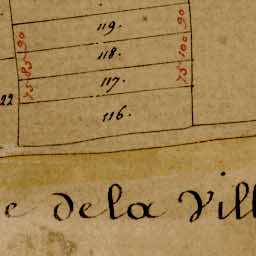 119.
118.
117.
22
116.
75 85 90
75 100 90
e dela Vill